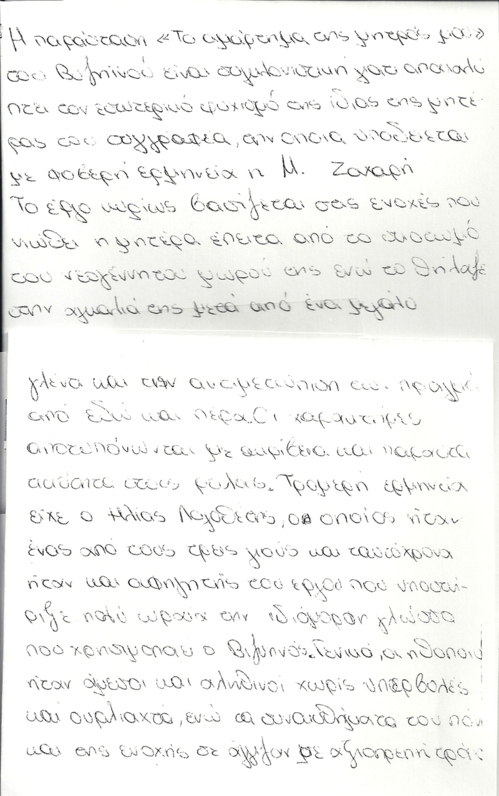 Η παράσταση «Το αμάρτημα της μητρός μου»
του Βιζυηνού είναι συγκλονιστική γιατί αποκαλύ
πτει τον εσωτερικό ψυχισμό της ίδιας της μητέ
ρας του συγγραφέα, την οποία υποδύεται
με φοβερή ερμηνεία η Μ. Ζαχαρή
Το έργο κυρίως βασίζεται στις ενοχές που
νιώθει η μητέρα έπειτα από το
του νεογέννητου μωρού της ενώ το θήλαζε
στην αγκαλιά της μετά από ένα μεγάλο
γλέντι και την αντιμετώπιση των
από εδώ και πέρα. Οι χαρακτήρες
αποτυπώνωνται με ακρίβεια και
στους ρόλους. Τρομερή ερμηνεία
είχε ο Ηλίας Λογοθέτης, ο οποίος ήταν
ένας από τους τρεις γιους και ταυτόχρονα
ήταν και αφηγητής του έργου που υποστή
ριξε πολύ ωραία την ιδιόμορφη γλώσσα
που χρησιμοποιεί ο Βιζυηνός. Γενικά, οι ηθοποιοί
ήταν άμεσοι και αληθινοί χωρίς υπερβολές
και ουρλιαχτά, ενώ τα συναισθήματα του πόν
και της ενοχής σε άγγιζαν με αξιοπρεπή τρόπ